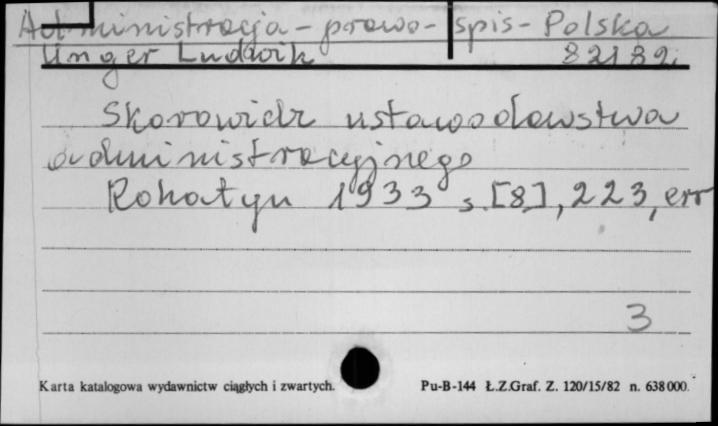 Administracja - prawo - spis - Polska
Unger Ludwik 82182.
Skorowidz ustawodawstwa
administracyjnego
Rohatyn 1933 s. [8], 223, err
3
Karta katalogowa wydawnictw ciągłych i zwartych. Pu-B-144 Ł.Z.Graf. Z. 120/15/82 n. 638000.